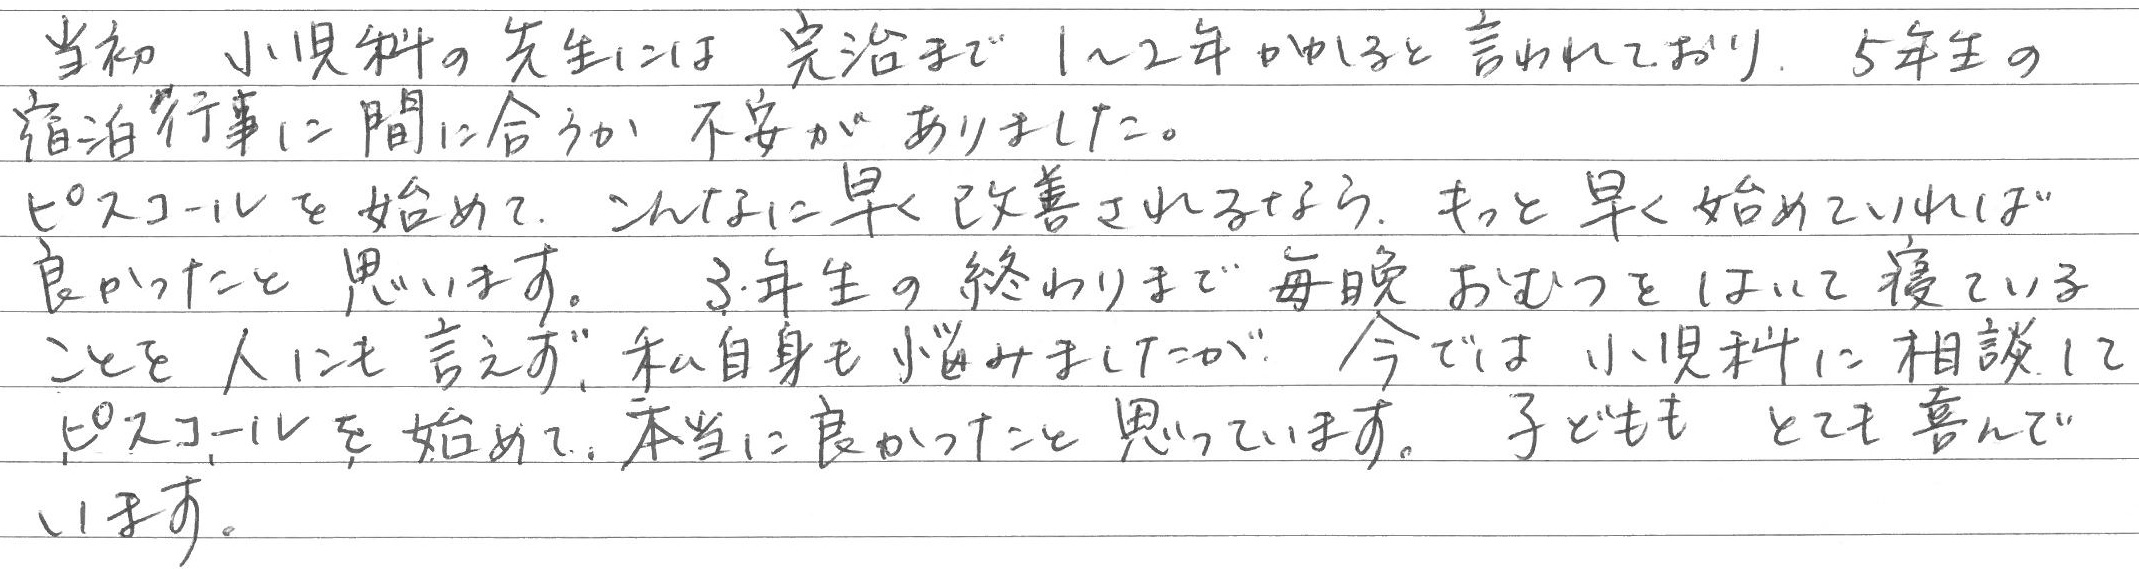 当初 小児科の先生には 完治まで 1~2年かかると言われており、5年生の
宿泊行事に間に合うか 不安がありました。
ピスコールを始めて、こんなに早く改善されるなら、もっと早く始めていれば
良かったと思います。 3年生の終わりまで毎晩おむつをはいて寝ている
ことを人にも言えず、私自身も悩みましたが、今では小児科に相談して
ピスコールを始めて、本当に良かったと思っています。 子どもも とても喜んで
います。